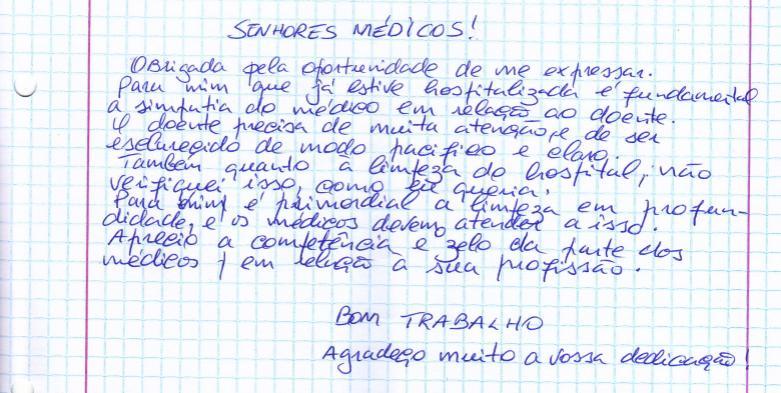 SENHORES MÉDICOS!
Obrigada pela oportunidade de me expressar.
Para mim que já estive hospitalizada é fundamental
a simpatia do médico em relação ao doente.
O doente precisa de muita atenção, e de ser
esclarecido de modo pacifico e claro.
Também quanto à limpeza do hospital, não
verifiquei isso, como eu queria.
Para mim é primordial a limpeza em profun-
didade, e os médicos devem atender a isso.
Aprecio a competência e zelo da parte dos
médicos, em relação à sua profissão.
BOM TRABALHO
Agradeço muito a vossa dedicação!